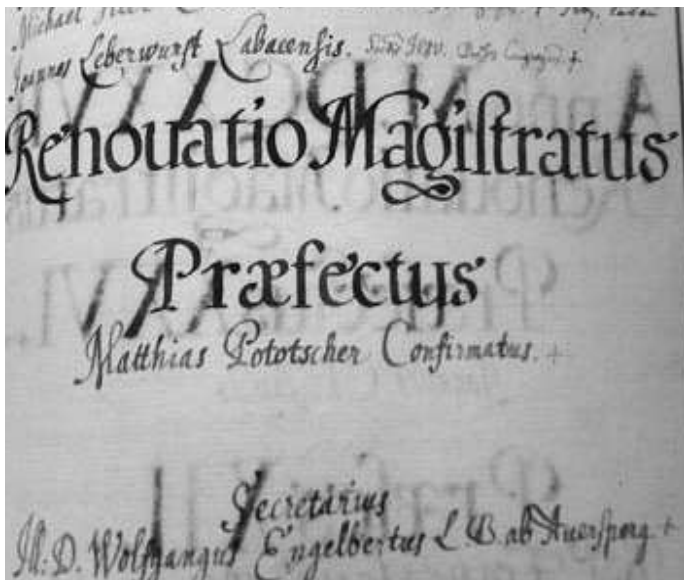 Michael
Joannes Leberwurst Labacensis.
Renouatio Magiſtratus
Præfectus
Matthias Pototscher Confirmatus. +
Secretarius
Ill: D. Wolfgangus Engelbertus L. B. ab Auersperg +